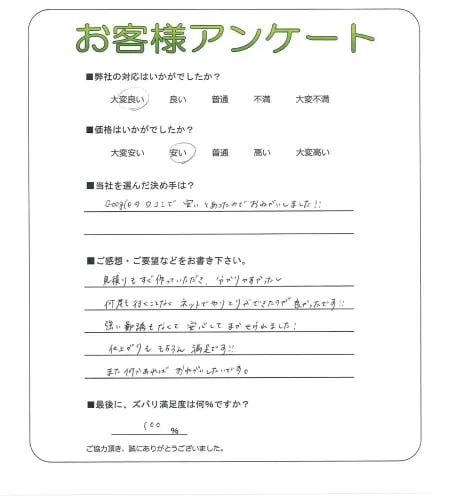 お客様アンケート
■弊社の対応はいかがでしたか？
大変良い 良い 普通 不満 大変不満
■価格はいかがでしたか？
大変安い 安い 普通 高い 大変高い
■当社を選んだ決め手は？
Googleの口コミで 安いとあったので おねがいしました!!
■ご感想・ご要望などをお書き下さい。
見積りもすぐ作っていただき、分かりやすかったし
何度も行くことなく ネットでやりとりができたのが良かったです!!
強い勧誘もなくて 安心して まかせられました!
仕上がりも もちろん 満足です!!
また何かあれば おねがいしたいです。
■最後に、ズバリ満足度は何%ですか？
100 %
ご協力頂き、誠にありがとうございました。